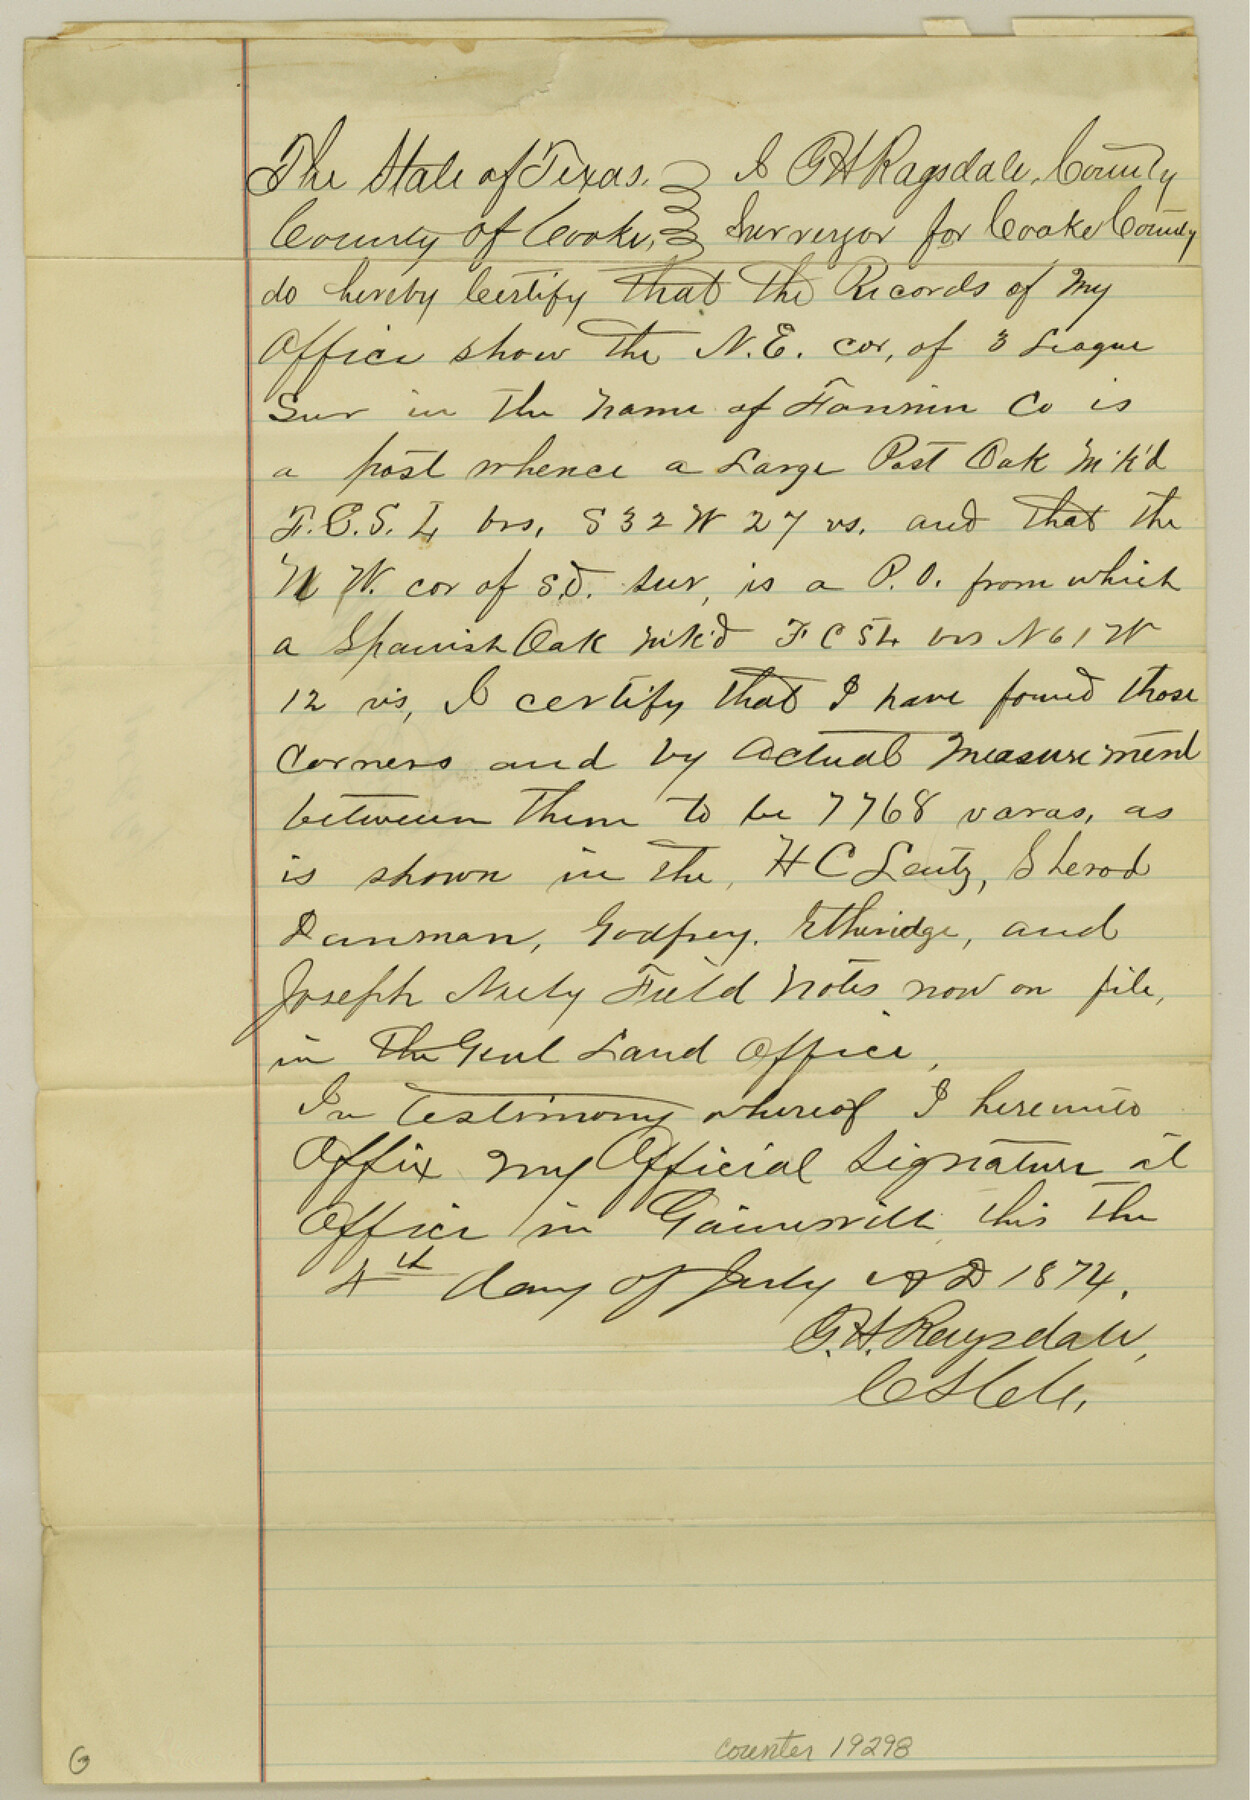 The State of Texas. I G H Ragsdale, County
County of Cooke, Surveyor for Cooke County
do hereby Certify that the Records of my
Office show the N.E. cor, of 3 League
Sur in the name of Fannin Co is
a post whence a Large Post Oak m'k'd
F.C.S.L brs, S 32 W 27 vs. and that the
N W. cor of S.D. Sur, is a P.O. from which
a Spanish Oak m'k'd F C S L brs N 61 W
12 vs, I certify that I have found those
Corners and by Actual Measurement
between them to be 7768 varas, as
is shown in the, H C Lentz, Sherod
Dunman, Godfrey. Etheridge, and
Joseph Neely Field Notes now on file,
in the Genl Land Office,
In Testimony whereof I hereunto
Affix my Official Signature at
Office in Gainesville this the
4th day of July A D 1874.
G. H. Ragsdale,
C S C C,
counter 19298